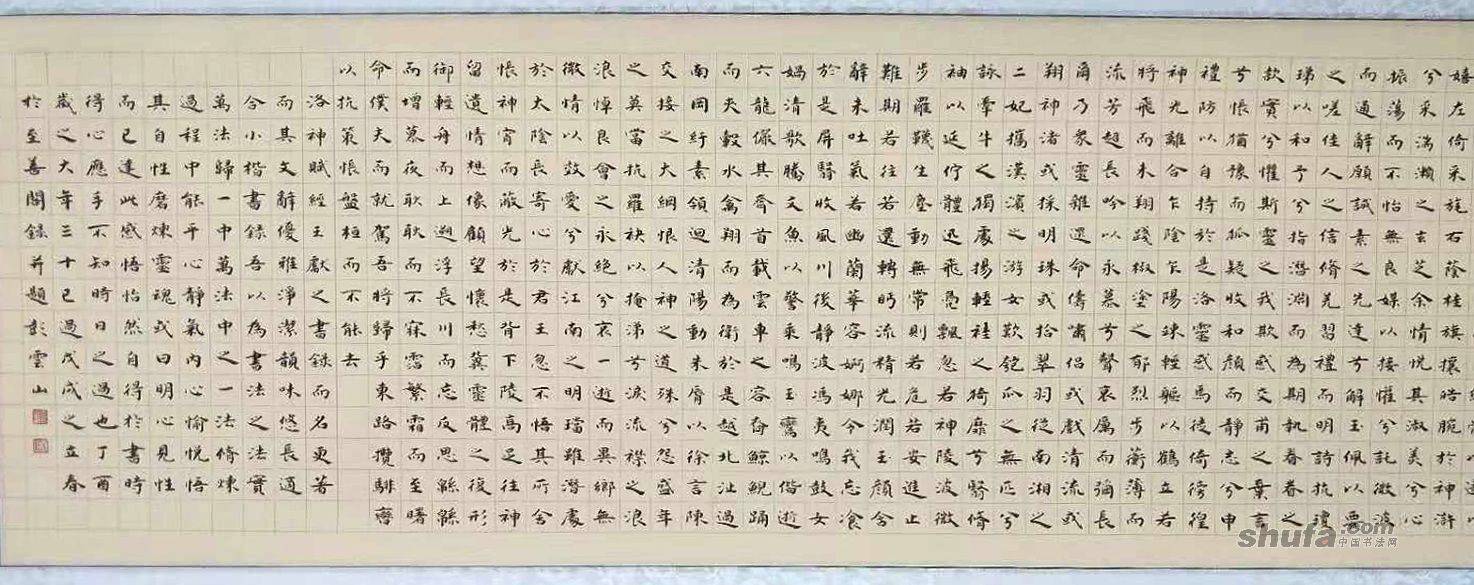 嬉左倚采旄右蔭桂旗攘皓腕於神滸
兮采湍瀨之玄芝余情悅其淑美兮心
振蕩而不怡無良媒以接懽兮託微波
而通辭願誠素之先達兮解玉佩以要
之嗟佳人之信脩羌習禮而明詩抗瓊
珶以和予兮指潛淵而為期執眷眷之
欵實兮懼斯靈之我欺感交甫之棄言
兮悵猶豫而狐疑收和顏而靜志兮申
禮防以自持於是洛靈感焉徙倚徬徨
神光離合乍陰乍陽竦輕軀以鶴立若
將飛而未翔踐椒塗之郁烈步蘅薄而
流芳超長吟以永慕兮聲哀厲而彌長
爾乃眾靈雜還命儔嘯侶或戲清流或
翔神渚或採明珠或拾翠羽從南湘之
二妃攜漢濱之游女歎匏瓜之無匹兮
詠牽牛之獨處揚輕袿之猗靡兮翳脩
袖以延佇體迅飛鳧飄忽若神陵波微
步羅韈生塵動無常則若危若安進止
難期若往若還轉眄流精光潤玉顏含
辭未吐氣若幽蘭華容婀娜令我忘飡
於是屏翳收風川後靜波馮夷鳴鼓女
媧清歌騰文魚以警乘鳴玉鸞以偕逝
六龍儼其齊首載雲車之容裔鯨鯢踊
而夾轂水禽翔而為衛於是越北沚過
南岡紆素領迴清陽動朱脣以徐言陳
交接之大綱恨人神之道殊兮怨盛年
之莫當抗羅袂以掩涕兮淚流襟之浪
浪悼良會之永絕兮哀一逝而異鄉無
微情以效愛兮獻江南之明璫雖潛處
於太陰長寄心於君王忽不悟其所舍
悵神宵而蔽光於是背下陵高足往神
留遺情想像顧望懷愁冀靈體之復形
御輕舟而上遡浮長川而忘反思緜緜
而增慕夜耿耿而不寐霑繁霜而至曙
命僕夫而就駕吾將歸乎東路攬騑轡
以抗策悵盤桓而不能去
洛神賦經王獻之書錄而名更著
而其文辭優雅淨潔韻味悠長適
今小楷書錄吾以為書法之法實
萬法歸一中萬法中之一法脩煉
過程中能平心靜氣內心愉悅悟
其自性磨煉靈魂或曰明心見性
而已達此感悟怡然自得於書時
得心應手不知時日之過也丁酉
歲之大年三十已過戊戌之立春
於至善閣錄并題彭雲山
shufa.com
中国书法网